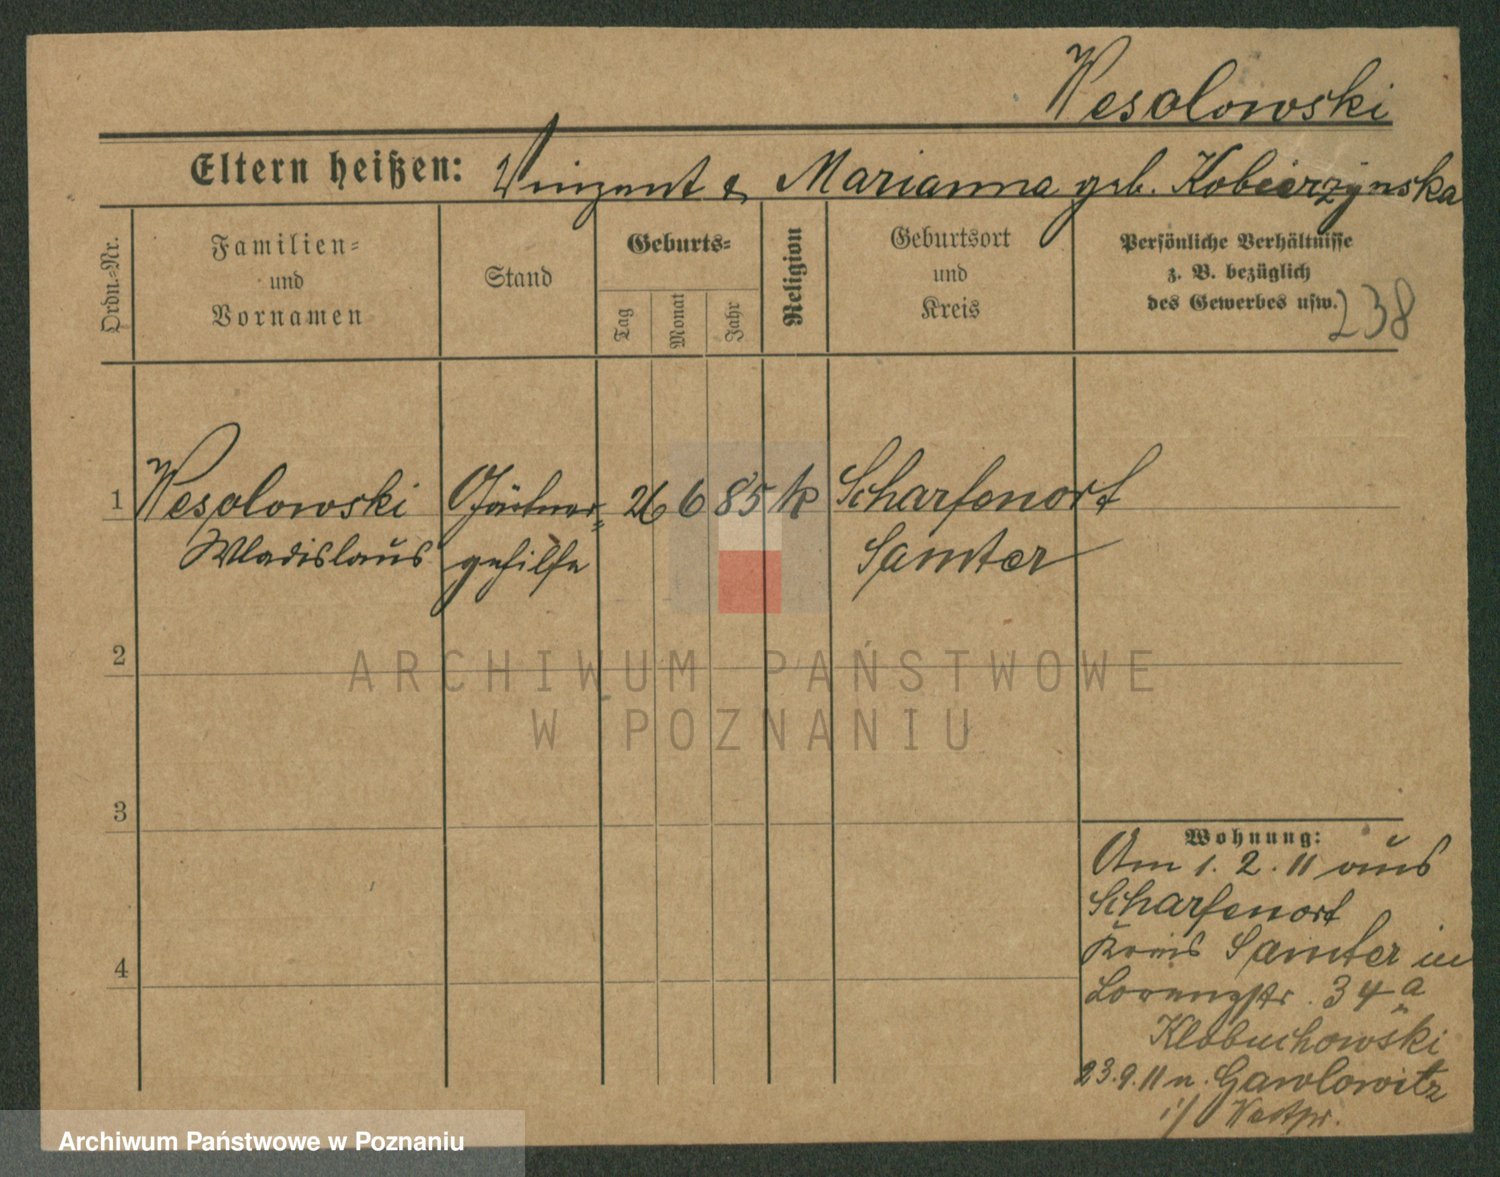 Wesolowski
Eltern heißen: Vinzent & Marianna geb. Kobierzynska
Ordn.-Nr.
Familien-
und
Vornamen
Stand
Geburts-
Tag
Monat
Jahr
Religion
Geburtsort
und
Kreis
Persönliche Verhältnisse
z. B. bezüglich
des Gewerbes usw.
238
1 Wesolowski Gärtner- 26 6 85 k Scharfenort
Wladislaus gehilfe Samter
2
ARCHIWUM PAŃSTWOWE
W POZNANIU
3
Wohnung:
Am 1. 2. 11 aus
Scharfenort
Kreis Samter in
4
Lorenzstr. 34a
Klobuchowski
23.9.11 n. Gawlowitz
i/ Westpr.
Archiwum Państwowe w Poznaniu